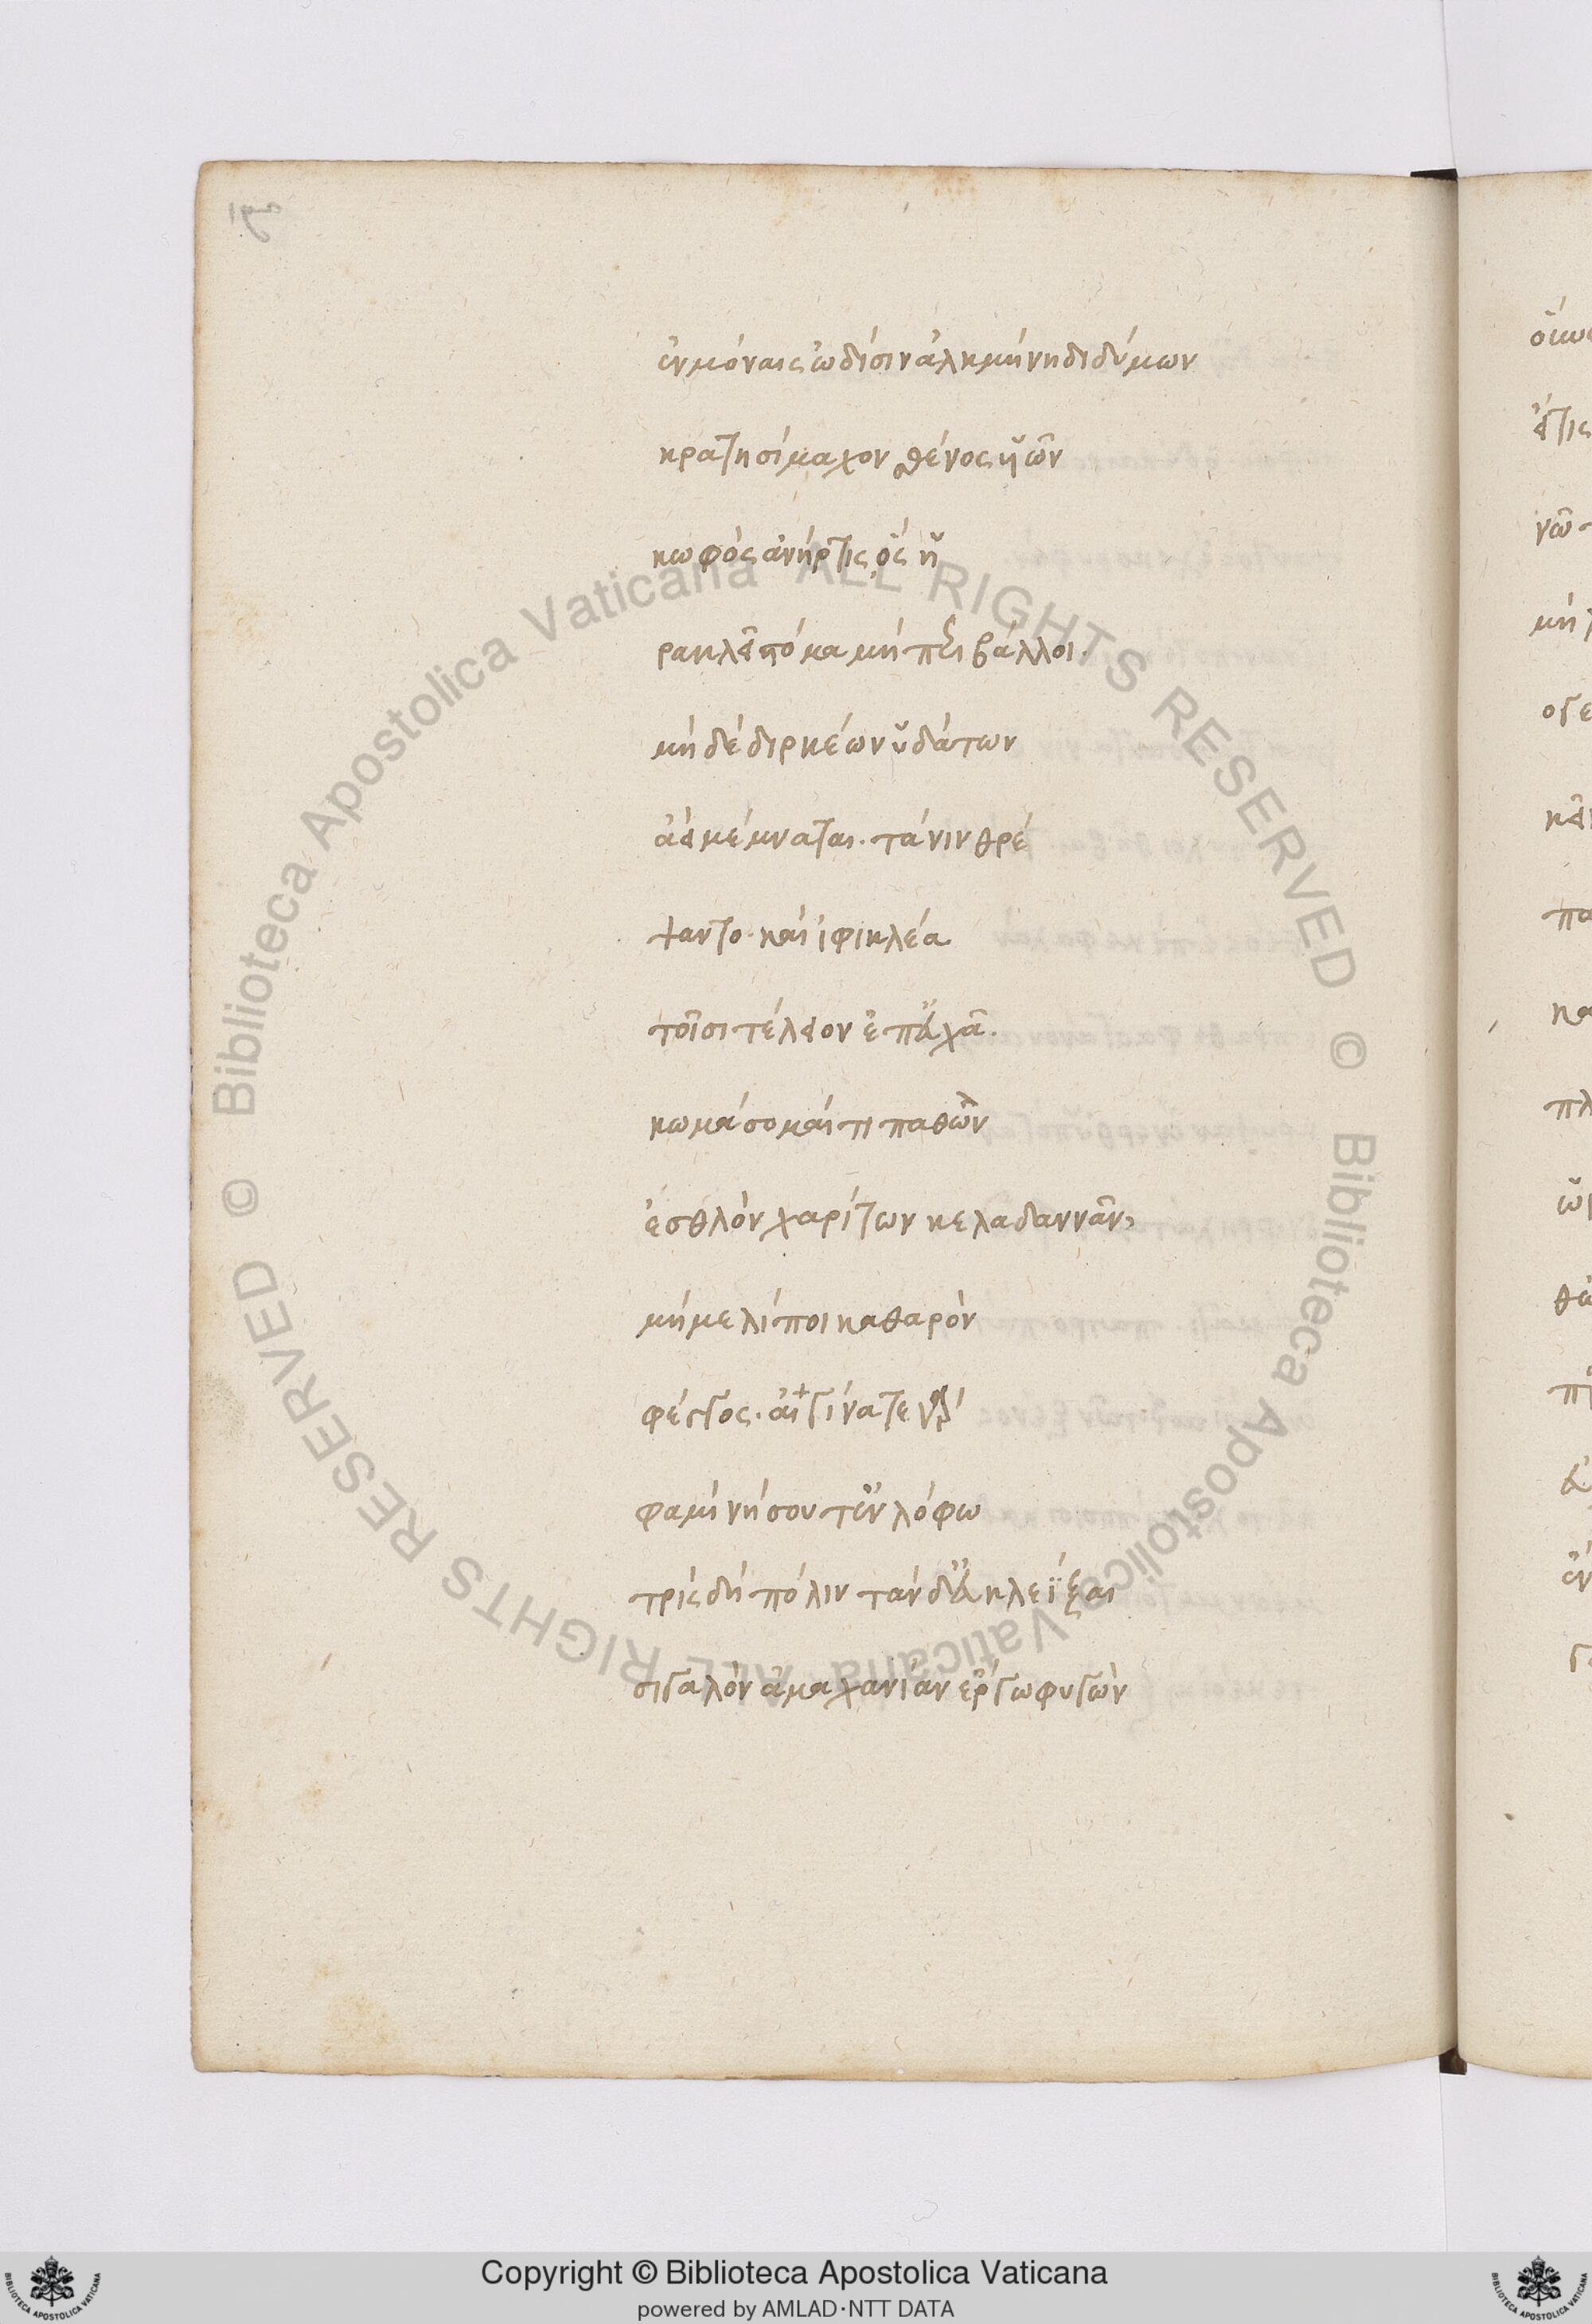 ἐν μόναις ὠδίσιν ἀλκμήνη διδύμων
κρατησίμαχον σθένος ὑῶν
κωφὸς ἀνήρ τις ὃς ἡ
ρακλεῖ στόμα μὴ περιβάλλοι.
μὴ δὲ διρκέων ὑδάτων
ἀεὶ μέμναται. τά νιν θρέ
ψαντο. καὶ ἰφικλέα
τοῖσι τέλειον ἐπ'
κωμάσομαί τι παθὼν
ἐσθλὸν χαρίτων κελαδαννᾶν,
μή με λίποι καθαρὸν
φέγγος. αἰγίνα τε
φαμὶ νήσου τ' ἐν λόφω
τρὶς δὴ πόλιν τάν δ' κλεΐξαι
σιγαλὸν ἀμαχανίαν ἔργω φυγὼν
Copyright © Biblioteca Apostolica Vaticana
powered by AMLAD·NTT DATA
© Biblioteca Apostolica Vaticana ALL RIGHTS RESERVED © Biblioteca Apostolica Vaticana ALL RIGHTS RESERVED